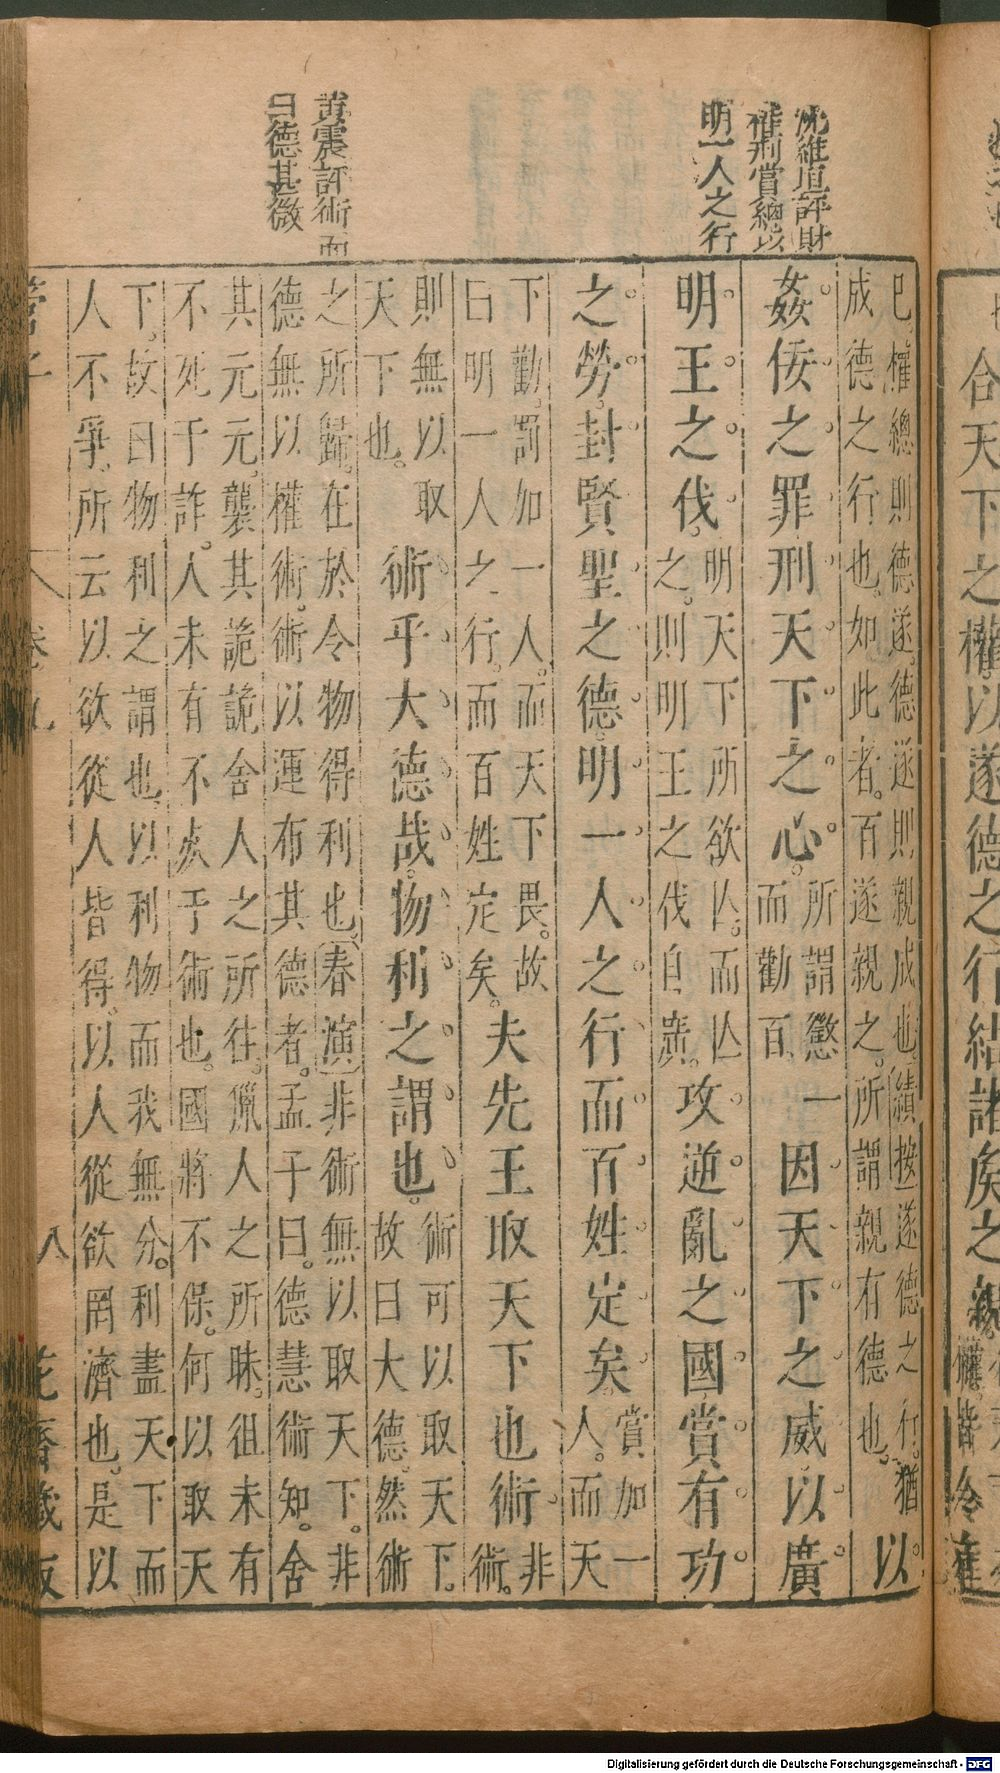 沈維垣評財
權刑賞總以
明一人之行
黃震評術而
曰德甚微
合天下之權以遂德之行結諸矦之親
已。權總則德遂。德遂則親成也。績按遂德之行。猶
成德之行也。如此者。百遂親之。所謂親有德也。
以
姦佞之罪刑天下之心。
所謂懲一
而勸百
因天下之威以廣
明王之伐。
明天下所欲亾。而亾
之。則明王之伐自廣。
攻逆亂之國賞有功
之勞。封賢聖之德。明一人之行而百姓定矣。
賞加一
人。而天
下勸。罰加一人。而天下畏。故
曰明一人之行。而百姓定矣。
夫先王取天下也術。
非
術。
則無以取
天下也。
術乎大德哉。物利之謂也。
術可以取天下。
故曰大德。然術
之所歸。在於令物得利也。春演非術無以取天下。非
德無以權術。術以運布其德者。孟子曰。德慧術知。舍
其元元。襲其詭詭舍人之所往。獵人之所昧。徂未有
不死于詐。人未有不疚于術也。國將不保。何以取天
下。故曰物利之謂也。以利物而我無分。利盡天下而
人不爭。所云以欲從人皆得。以人從欲罔濟也。是以
管子
卷九
八
花齋藏板
Digitalisierung gefördert durch die Deutsche Forschungsgemeinschaft - DFG